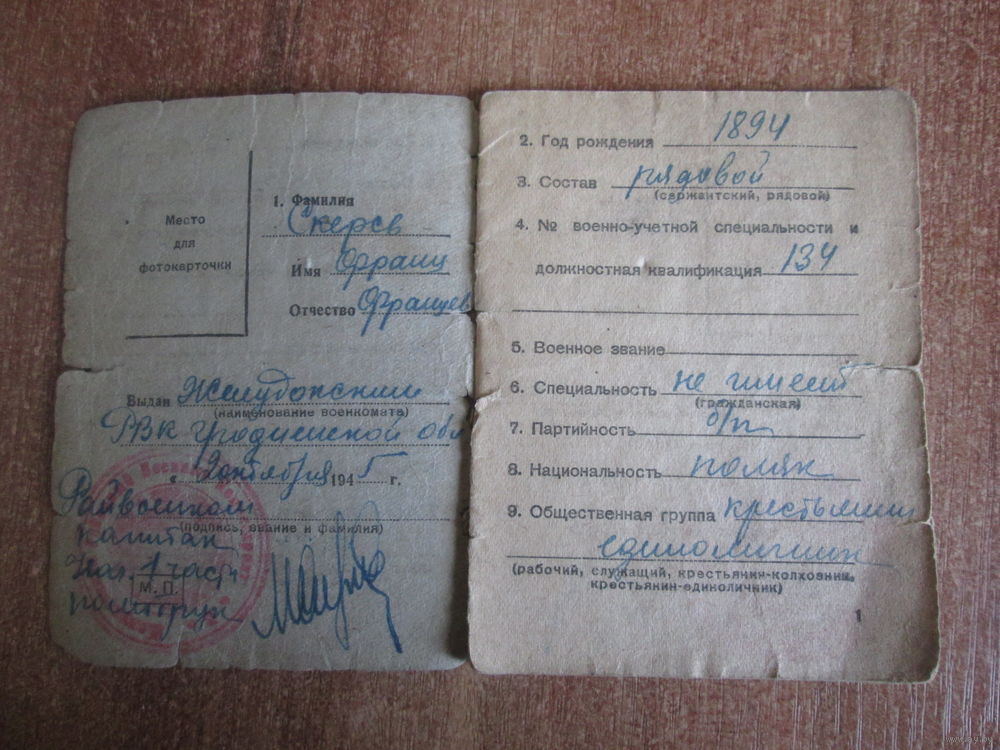 Место
для
фотокарточки
1. Фамилия
Скерсв
Имя Франц
Отчество Францев
Выдан Желудокским
(наименование военкомата)
РВК Гродненской обл
„ 2 октября 1945 г.
Райвоенком
(подпись, звание и фамилия)
капитан
Нач. 1 части
М. П.
политрук
2. Год рождения 1894
3. Состав рядовой
(сержантский, рядовой)
4. № военно-учетной специальности и
должностная квалификация 134
5. Военное звание
6. Специальность не имеет
(гражданская)
7. Партийность б/п
8. Национальность поляк
9. Общественная группа крестьянин
единоличник
(рабочий, служащий, крестьянин-колхозник,
крестьянин-единоличник)
1